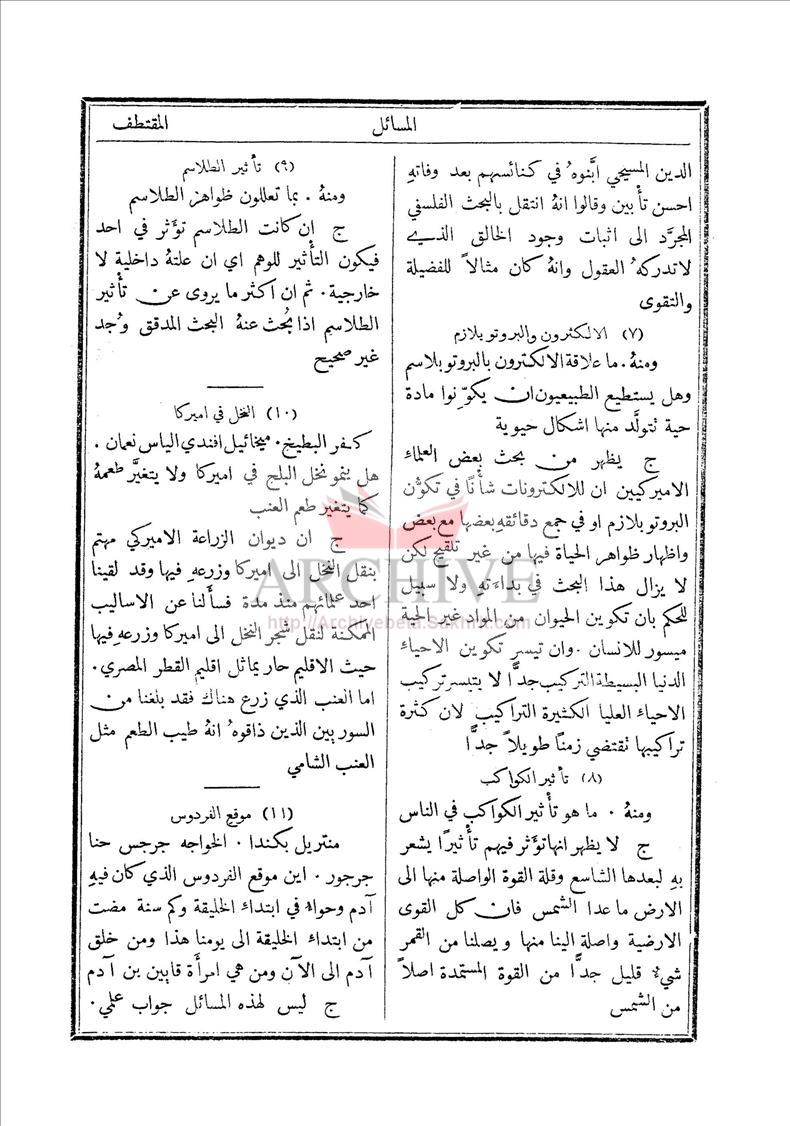 المسائل
المقتطف
الدين المسيحي ابَّنوهُ في كنائسهم بعد وفاتهِ
احسن تأبين وقالوا انهُ انتقل بالبحث الفلسفي
المجرَّد الى اثبات وجود الخالق الذي
لا تدركهُ العقول وانهُ كان مثالاً للفضيلة
والتقوى
(٧) الالكترون والبروتوبلازم
ومنهُ . ما علاقة الالكترون بالبروتوبلاسم
وهل يستطيع الطبيعيون ان يكوِّنوا مادة
حية تتولَّد منها اشكال حيوية
ج يظهر من بحث بعض العلماء
الاميركيين ان للالكترونات شأنًا في تكوُّن
البروتوبلازم او في جمع دقائقهِ بعضها مع بعض
واظهار ظواهر الحياة فيها من غير تلقيح لكن
لا يزال هذا البحث في بداءتهِ ولا سبيل
للحكم بان تكوين الحيوان من المواد غير الحية
ميسور للانسان . وان تيسر تكوين الاحياء
الدنيا البسيطة التركيب جدًّا لا يتيسر تركيب
الاحياء العليا الكثيرة التراكيب لان كثرة
تراكيبها تقتضي زمنًا طويلاً جدًّا
(٨) تأثير الكواكب
ومنهُ . ما هو تأثير الكواكب في الناس
ج لا يظهر انها تؤثر فيهم تأثيرًا يشعر
بهِ لبعدها الشاسع وقلة القوة الواصلة منها الى
الارض ما عدا الشمس فان كل القوى
الارضية واصلة الينا منها ويصلنا من القمر
شيء قليل جدًّا من القوة المستمدة اصلاً
من الشمس
(٩) تأثير الطلاسم
ومنهُ . بما تعللون ظواهر الطلاسم
ج ان كانت الطلاسم تؤثر في احد
فيكون التأثير للوهم اي ان علتهُ داخلية لا
خارجية . ثم ان اكثر ما يروى عن تأثير
الطلاسم اذا بُحث عنهُ البحث المدقق وُجد
غير صحيح
(١٠) النخل في اميركا
كفر البطيخ . ميخائيل افندي الياس نعمان .
هل ينمو نخل البلح في اميركا ولا يتغيَّر طعمهُ
كما يتغير طعم العنب
ج ان ديوان الزراعة الاميركي مهتم
بنقل النخل الى اميركا وزرعهِ فيها وقد لقينا
احد عمالهم منذ مدة فسألنا عن الاساليب
الممكنة لنقل شجر النخل الى اميركا وزرعهِ فيها
حيث الاقليم حار يماثل اقليم القطر المصري .
اما العنب الذي زرع هناك فقد بلغنا من
السوريين الذين ذاقوهُ انهُ طيب الطعم مثل
العنب الشامي
(١١) موقع الفردوس
منتريل بكندا . الخواجه جرجس حنا
جرجور . اين موقع الفردوس الذي كان فيهِ
آدم وحواء في ابتداء الخليقة وكم سنة مضت
من ابتداء الخليقة الى يومنا هذا ومن خلق
آدم الى الآن ومن هي امرأة قايين بن آدم
ج ليس لهذه المسائل جواب علمي .
ARCHIVE
http://Archivebeta.Sakhrit.com